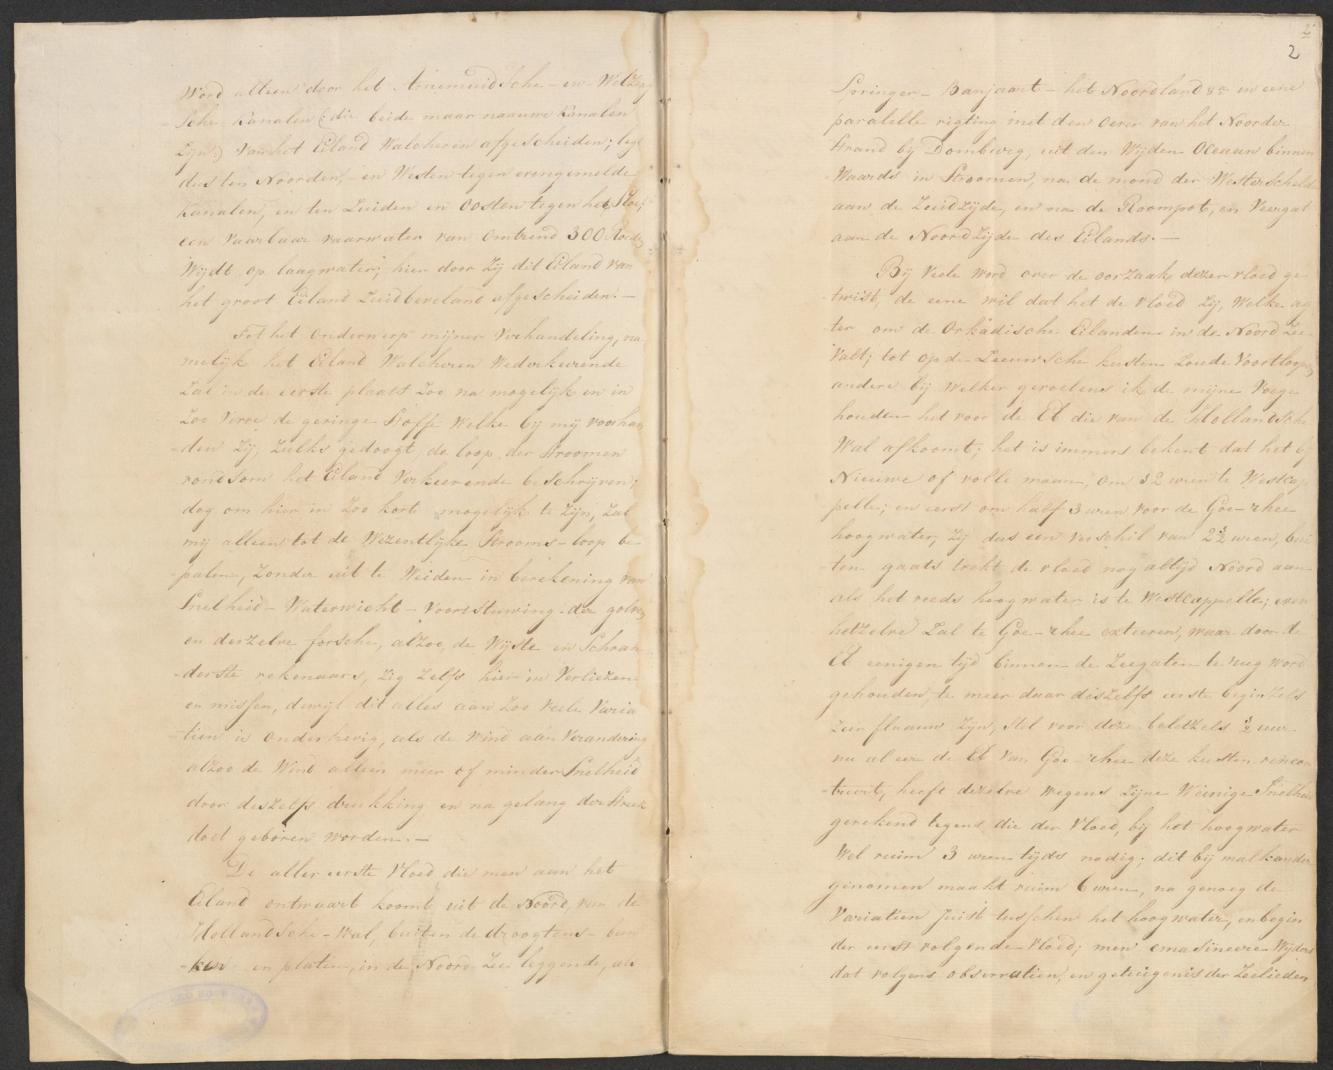 Word alleen door het Arnemuidsche - en Welzing
- sche Kanalen (die beide maar naauwe Kanalen
Zijn) van het Eiland Walcheren afgescheiden; legt
dus ten Noorden, en Westen tegen evengemelde
Kanalen, en ten Zuiden en Oosten tegen het Sloe;
een vaarbaar vaarwater van omtrend 300 Roede
Wydt op laagwater; hier door Zy dit Eiland van
het groot Eiland Zuidbeveland afgescheiden. —
Tot het onderwerp mijner Verhandeling, na
melijk het Eiland Walcheren Wederkeerende
Zal in de eerste plaats Zoo na mogelijk en in
Zoo Verre de geringe Stoffe Welke by mij voorhan
- den Zy, Zulks gedoogt, de loop der Stroomen
rondsom het Eiland Verkeerende beschrijven;
dog om hier in Zoo kort mogelijk te Zijn, Zal
mij alleen tot de Wezentlijke Strooms-loop be-
- palen, Zonder uit te Weiden in berekening van
Snelheid - Waterwicht - Voortstuwing der golve
en derzelve forsche, alzoo, de Wijste en Schran
- derste rekenaars, Zig Zelfs hier in Verliezen
en missen, dewijl dit alles aan Zoo veele Varia
- tien is onderhevig, als de Wind aan Verandering
alzoo de Wind alleen meer of minder Snelheid
door deszelfs drukking en na gelang der Streek
doet geboren worden. —
De aller eerste Vloed die men aan het
Eiland ontwaart koomt uit de Noord, van de
Hollandsche - Wal, buiten de droogtens - ban
- ken en platen, in de Noord Zee leggende, als
2
Springer - Banjaart - het Noordland &c in eene
paralelle rigting met den Oever van het Noorder
Strand by Domburg, uit den Wijden Oceaan binnen
- Waards in Stroomen, na de mond der Westerschelde
aan de Zuidzijde, en na de Roompot, en Veergat
aan de Noordzijde des Eilands. —
Bij Veele word over de oorzaak dezer vloed ge
- twist, de eene wil dat het de vloed Zij, Welke ag
- ter om de Orkadische Eilanden in de Noord Zee
Valt; tot op de Zeeuwsche kusten Zoude Voortlopen
andere bij Welker gevoelens ik de mijne Voege
houden het voor de Eb die van de Hollandsche
Wal afkoomt; het is immers bekent dat het by
Nieuwe of volle maan, om 12 uuren te Westkap
- pelle; en eerst om half 3 uren voor de Goe-rhee
hoogwater, Zij dus een verschil van 2½ uuren, bui
- ten gaats trekt de vloed nog altijd Noord aan
als het reeds hoogwater is te Westcappelle; even
hetzelve Zal te Goe-rhee exteeren, waar door de
Eb eenigen tijd binnen de Zeegaten te rug word
gehouden, te meer daar deszelfs eerste beginzels
Zeer flaauw Zijn, Stel voor deze beletzels ½ uur
nu al eer de Eb van Goe-rhee deze kusten rencon
- treert, heeft dezelve wegens Zijne Weinige Snelheid
gerekend tegens die der Vloed, bij het hoogwater
Wel ruim 3 uren tijds nodig; dit bij malkander
genomen maakt ruim 6 uren, na genoeg de
Variatien juist tusschen het hoogwater, en begin
der eerst volgende Vloed; men emasineere Wijders
dat volgens observatien, en getuigenis der Zeelieden